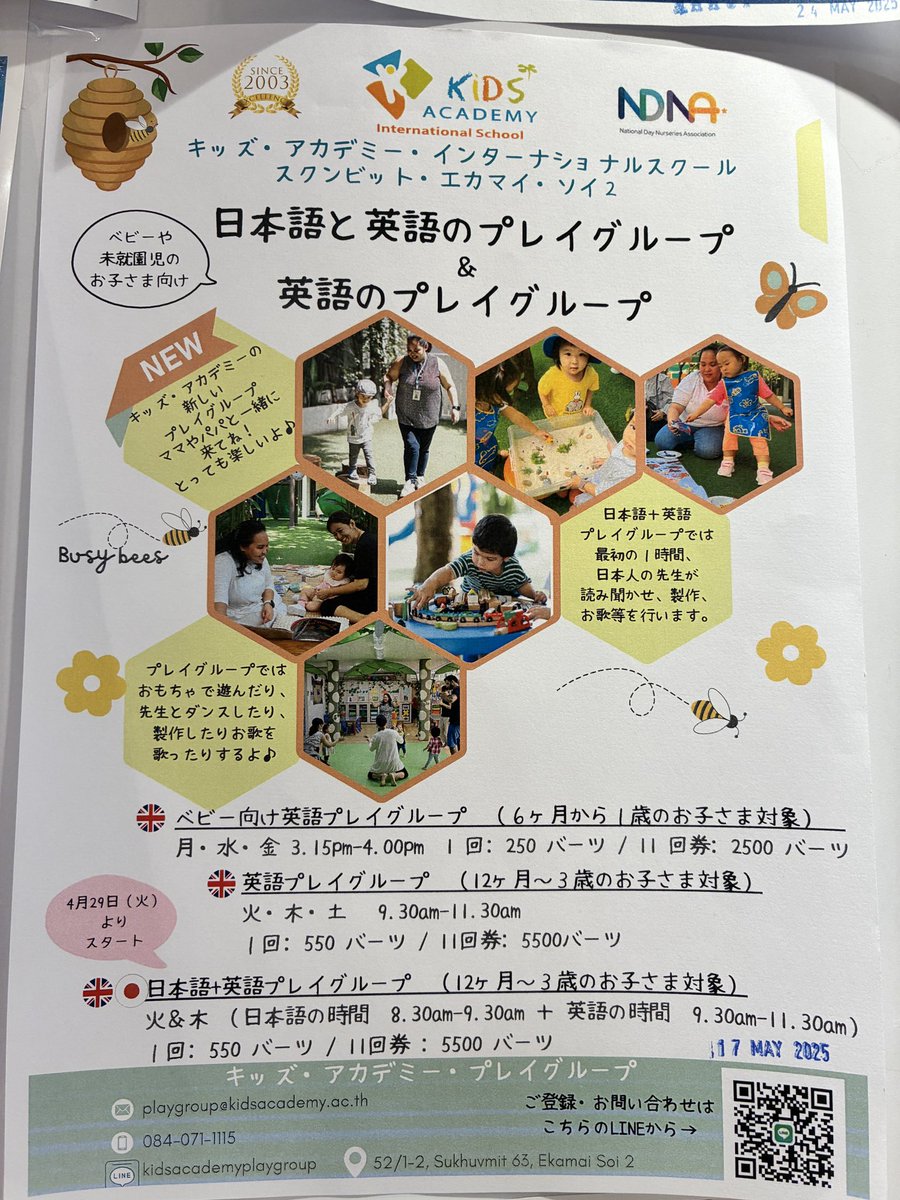 24 MAY 2025
SINCE
2003
KiDS
ACADEMY
International School
NDNA
National Day Nurseries Association
キッズ・アカデミー・インターナショナルスクール
スクンビット・エカマイ・ソイ2
ベビーや
未就園児の
お子さま向け
日本語と英語のプレイグループ
&
英語のプレイグループ
NEW
キッズ・アカデミーの
新しい
プレイグループ
ママやパパと一緒に
来てね!
とっても楽しいよ♪
Busy bees
日本語+英語
プレイグループでは
最初の1時間、
日本人の先生が
読み聞かせ、製作、
お歌等を行います。
プレイグループでは
おもちゃで遊んだり、
先生とダンスしたり、
製作したりお歌を
歌ったりするよ♪
ベビー向け英語プレイグループ (6ヶ月から1歳のお子さま対象)
月・水・金 3.15pm-4.00pm 1回: 250 バーツ / 11回券: 2500 バーツ
英語プレイグループ (12ヶ月~3歳のお子さま対象)
火・木・土 9.30am-11.30am
1回: 550 バーツ / 11回券: 5500バーツ
4月29日(火)
より
スタート
日本語+英語プレイグループ (12ヶ月~3歳のお子さま対象)
火&木 (日本語の時間 8.30am-9.30am + 英語の時間 9.30am-11.30am)
1回: 550 バーツ / 11回券: 5500 バーツ
17 MAY 2025
キッズ・アカデミー・プレイグループ
playgroup@kidsacademy.ac.th
084-071-1115
LINE
kidsacademyplaygroup
52/1-2, Sukhuvmit 63, Ekamai Soi 2
ご登録・お問い合わせは
こちらのLINEから→